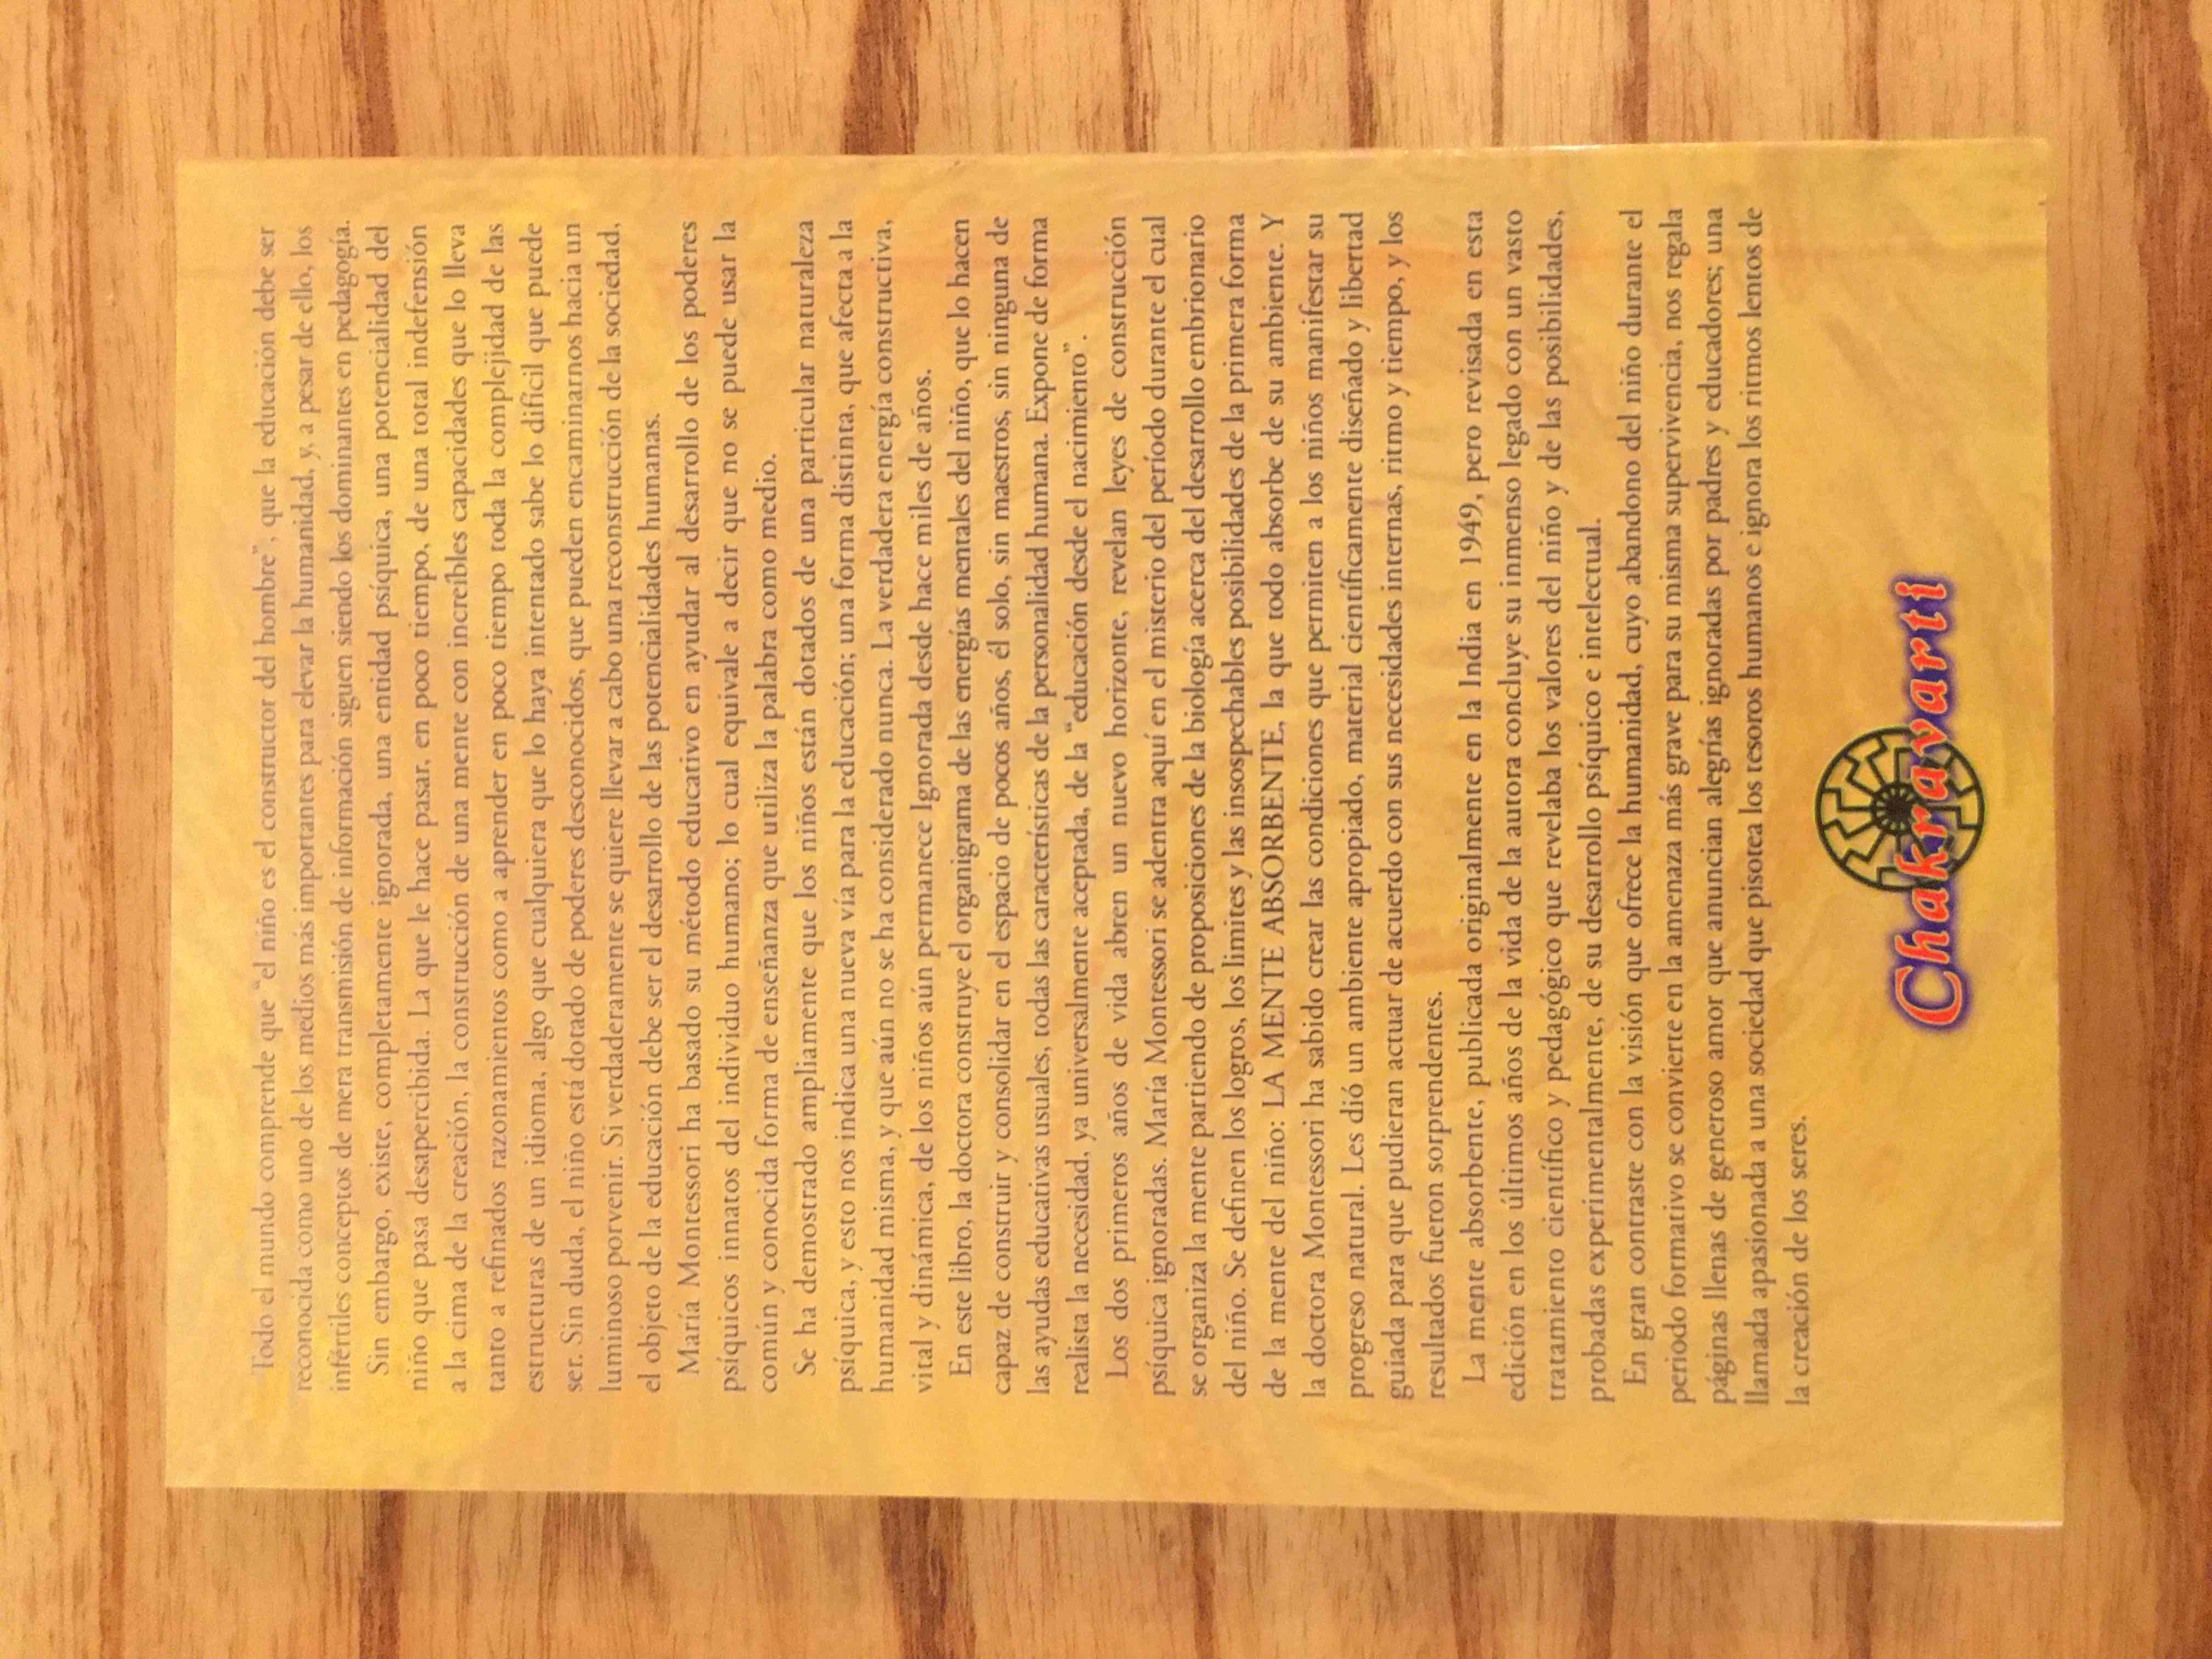 Todo el mundo comprende que "el niño es el constructor del hombre", que la educación debe ser
reconocida como uno de los medios más importantes para elevar la humanidad, y, a pesar de ello, los
infértiles conceptos de mera transmisión de información siguen siendo los dominantes en pedagogía.
Sin embargo, existe, completamente ignorada, una entidad psíquica, una potencialidad del
niño que pasa desapercibida. La que le hace pasar, en poco tiempo, de una total indefensión
a la cima de la creación, la construcción de una mente con increíbles capacidades que lo lleva
tanto a refinados razonamientos como a aprender en poco tiempo toda la complejidad de las
estructuras de un idioma, algo que cualquiera que lo haya intentado sabe lo difícil que puede
ser. Sin duda, el niño está dotado de poderes desconocidos, que pueden encaminarnos hacia un
luminoso porvenir. Si verdaderamente se quiere llevar a cabo una reconstrucción de la sociedad,
el objeto de la educación debe ser el desarrollo de las potencialidades humanas.
María Montessori ha basado su método educativo en ayudar al desarrollo de los poderes
psíquicos innatos del individuo humano; lo cual equivale a decir que no se puede usar la
común y conocida forma de enseñanza que utiliza la palabra como medio.
Se ha demostrado ampliamente que los niños están dotados de una particular naturaleza
psíquica, y esto nos indica una nueva vía para la educación; una forma distinta, que afecta a la
humanidad misma, y que aún no se ha considerado nunca. La verdadera energía constructiva,
vital y dinámica, de los niños aún permanece Ignorada desde hace miles de años.
En este libro, la doctora construye el organigrama de las energías mentales del niño, que lo hacen
capaz de construir y consolidar en el espacio de pocos años, él solo, sin maestros, sin ninguna de
las ayudas educativas usuales, todas las características de la personalidad humana. Expone de forma
realista la necesidad, ya universalmente aceptada, de la "educación desde el nacimiento".
Los dos primeros años de vida abren un nuevo horizonte, revelan leyes de construcción
psíquica ignoradas. María Montessori se adentra aquí en el misterio del período durante el cual
se organiza la mente partiendo de proposiciones de la biología acerca del desarrollo embrionario
del niño. Se definen los logros, los limites y las insospechables posibilidades de la primera forma
de la mente del niño: LA MENTE ABSORBENTE, la que todo absorbe de su ambiente. Y
la doctora Montessori ha sabido crear las condiciones que permiten a los niños manifestar su
progreso natural. Les dió un ambiente apropiado, material científicamente diseñado y libertad
guiada para que pudieran actuar de acuerdo con sus necesidades internas, ritmo y tiempo, y los
resultados fueron sorprendentes.
La mente absorbente, publicada originalmente en la India en 1949, pero revisada en esta
edición en los últimos años de la vida de la autora concluye su inmenso legado con un vasto
tratamiento científico y pedagógico que revelaba los valores del niño y de las posibilidades,
probadas experimentalmente, de su desarrollo psíquico e intelectual.
En gran contraste con la visión que ofrece la humanidad, cuyo abandono del niño durante el
periodo formativo se convierte en la amenaza más grave para su misma supervivencia, nos regala
páginas llenas de generoso amor que anuncian alegrías ignoradas por padres y educadores; una
llamada apasionada a una sociedad que pisotea los tesoros humanos e ignora los ritmos lentos de
la creación de los seres.
Chakravarti